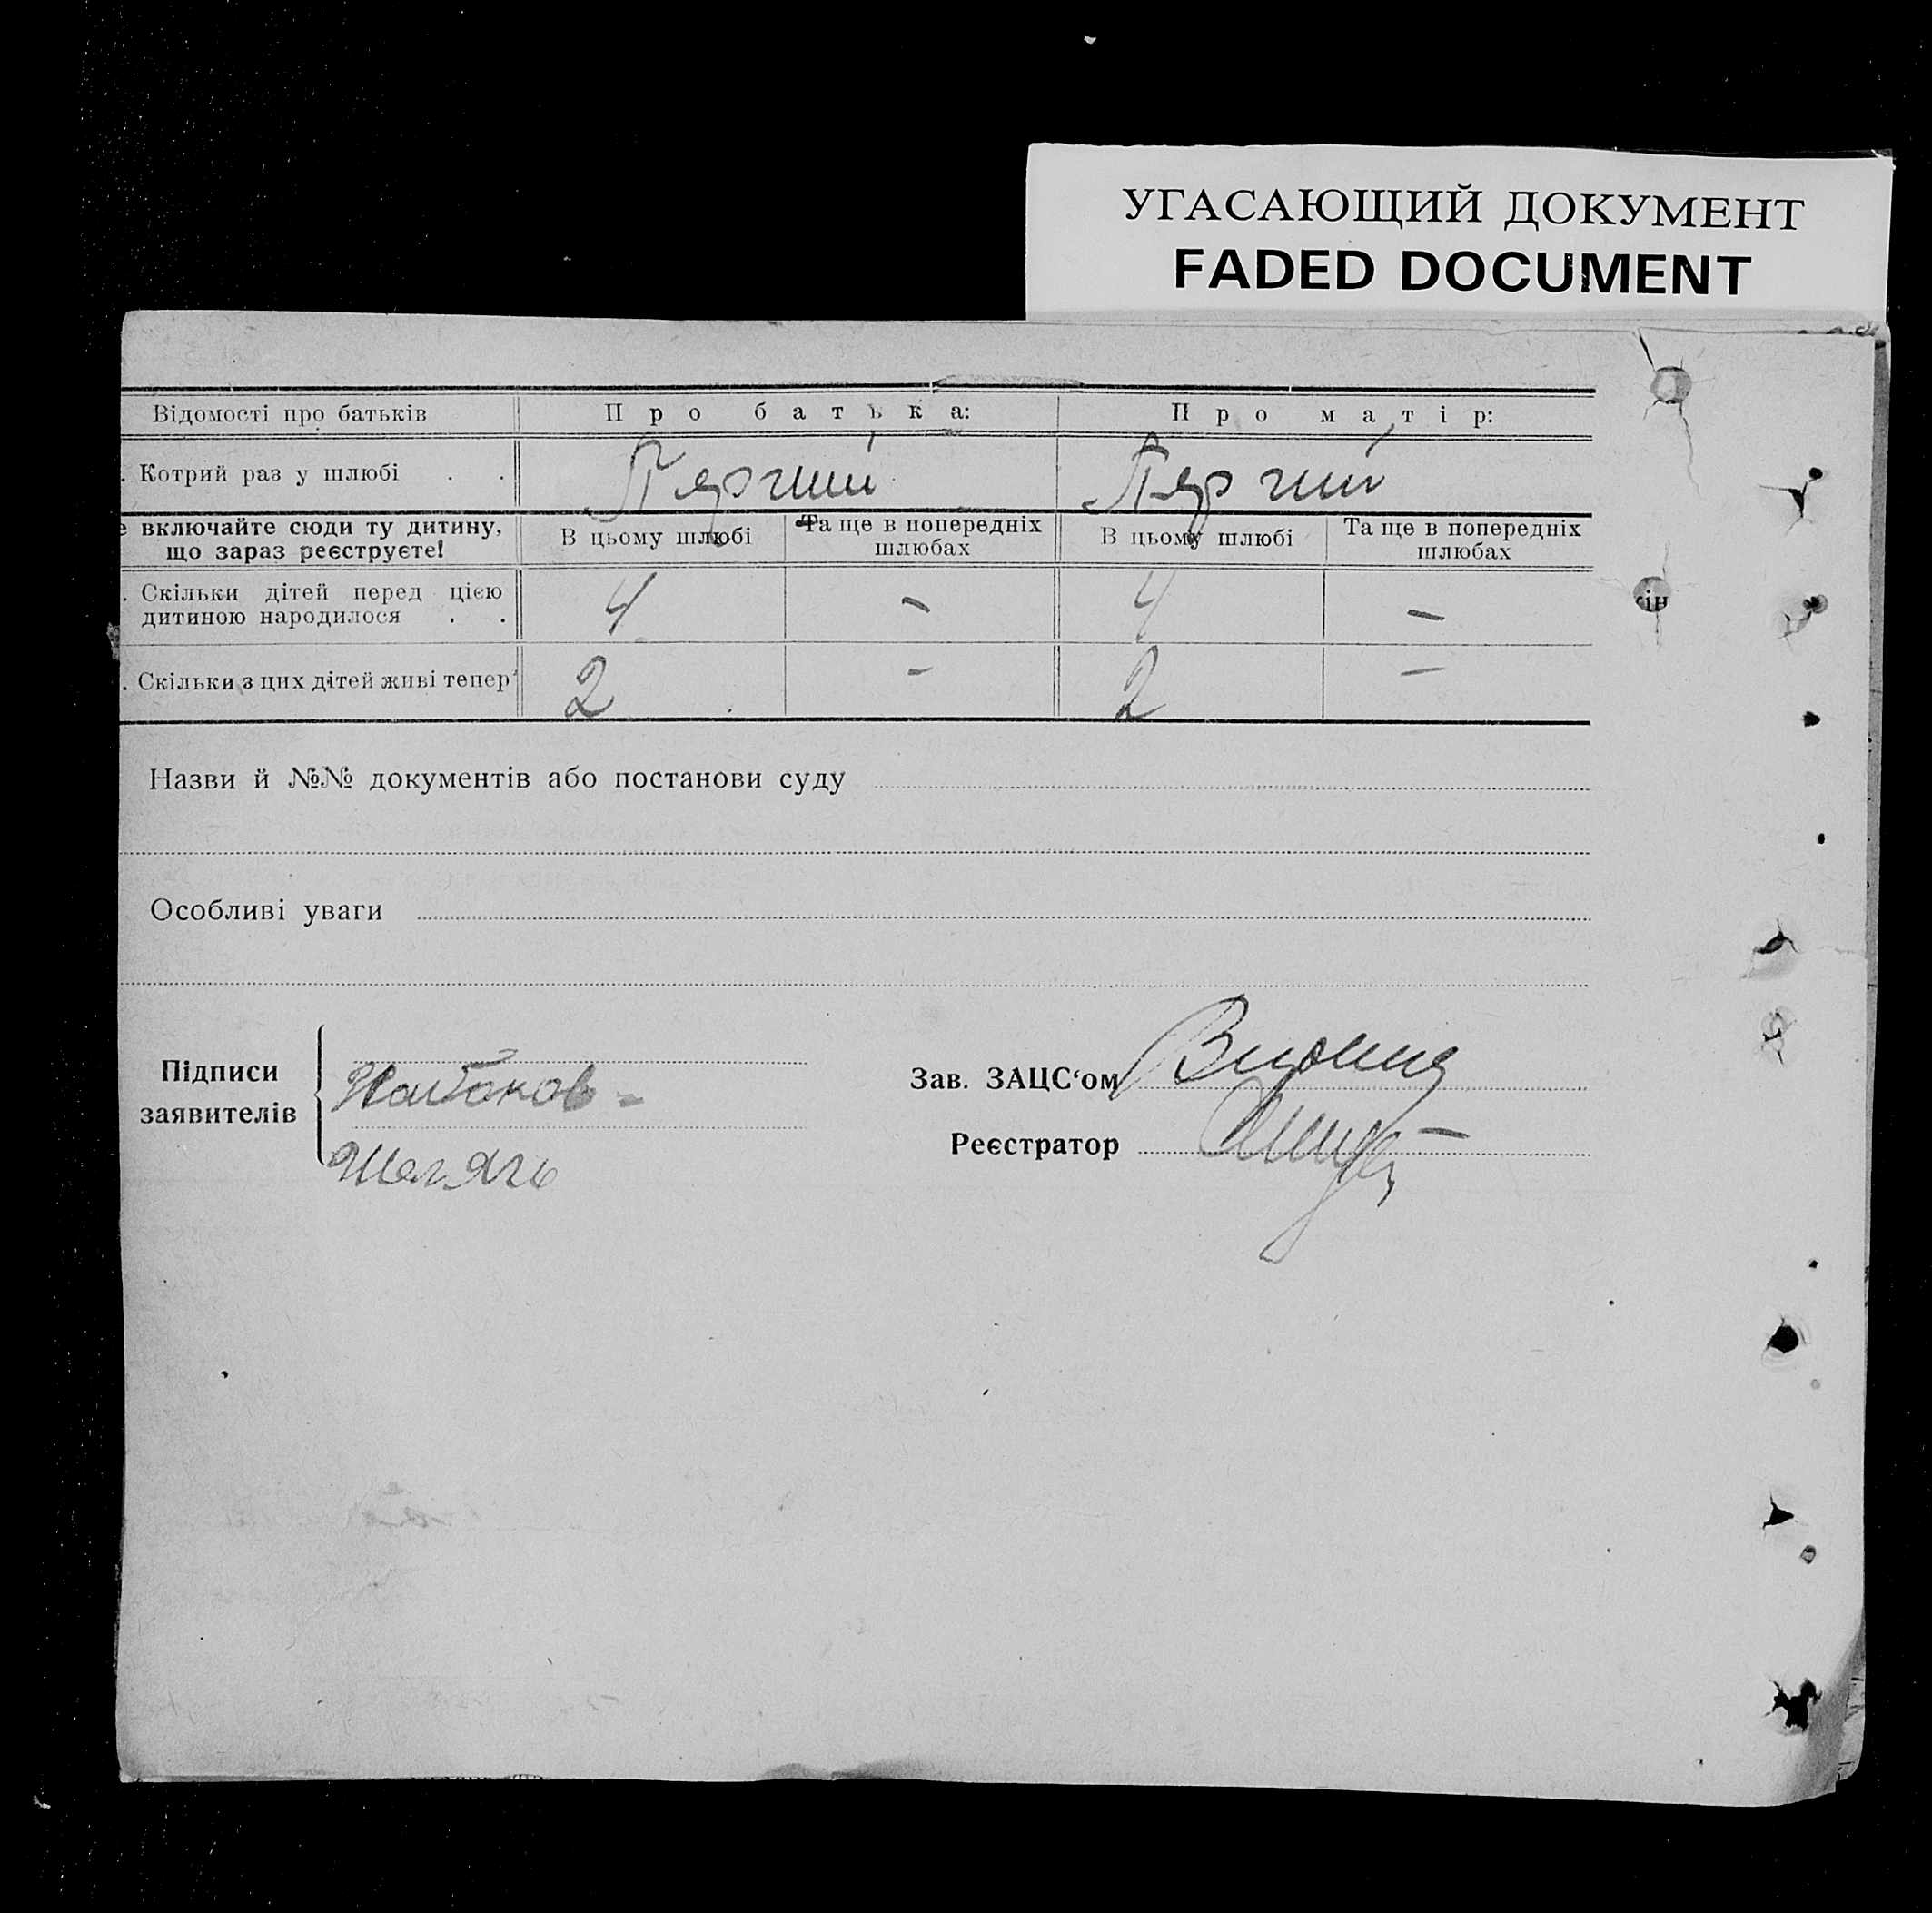 УГАСАЮЩИЙ ДОКУМЕНТ
FADED DOCUMENT
Відомості про батьків Про батька: Про матір:
. Котрий раз у шлюбі . . Перший Перший
е включайте сюди ту дитину, що зараз реєструєте! В цьому шлюбі Та ще в попередніх шлюбах В цьому шлюбі Та ще в попередніх шлюбах
. Скільки дітей перед цією дитиною народилося . . 4 – 4 –
. Скільки з цих дітей живі тепер 2 – 2 –
Назви й №№ документів або постанови суду
Особливі уваги
Підписи заявителів
Зав. ЗАЦС‘ом
Реєстратор